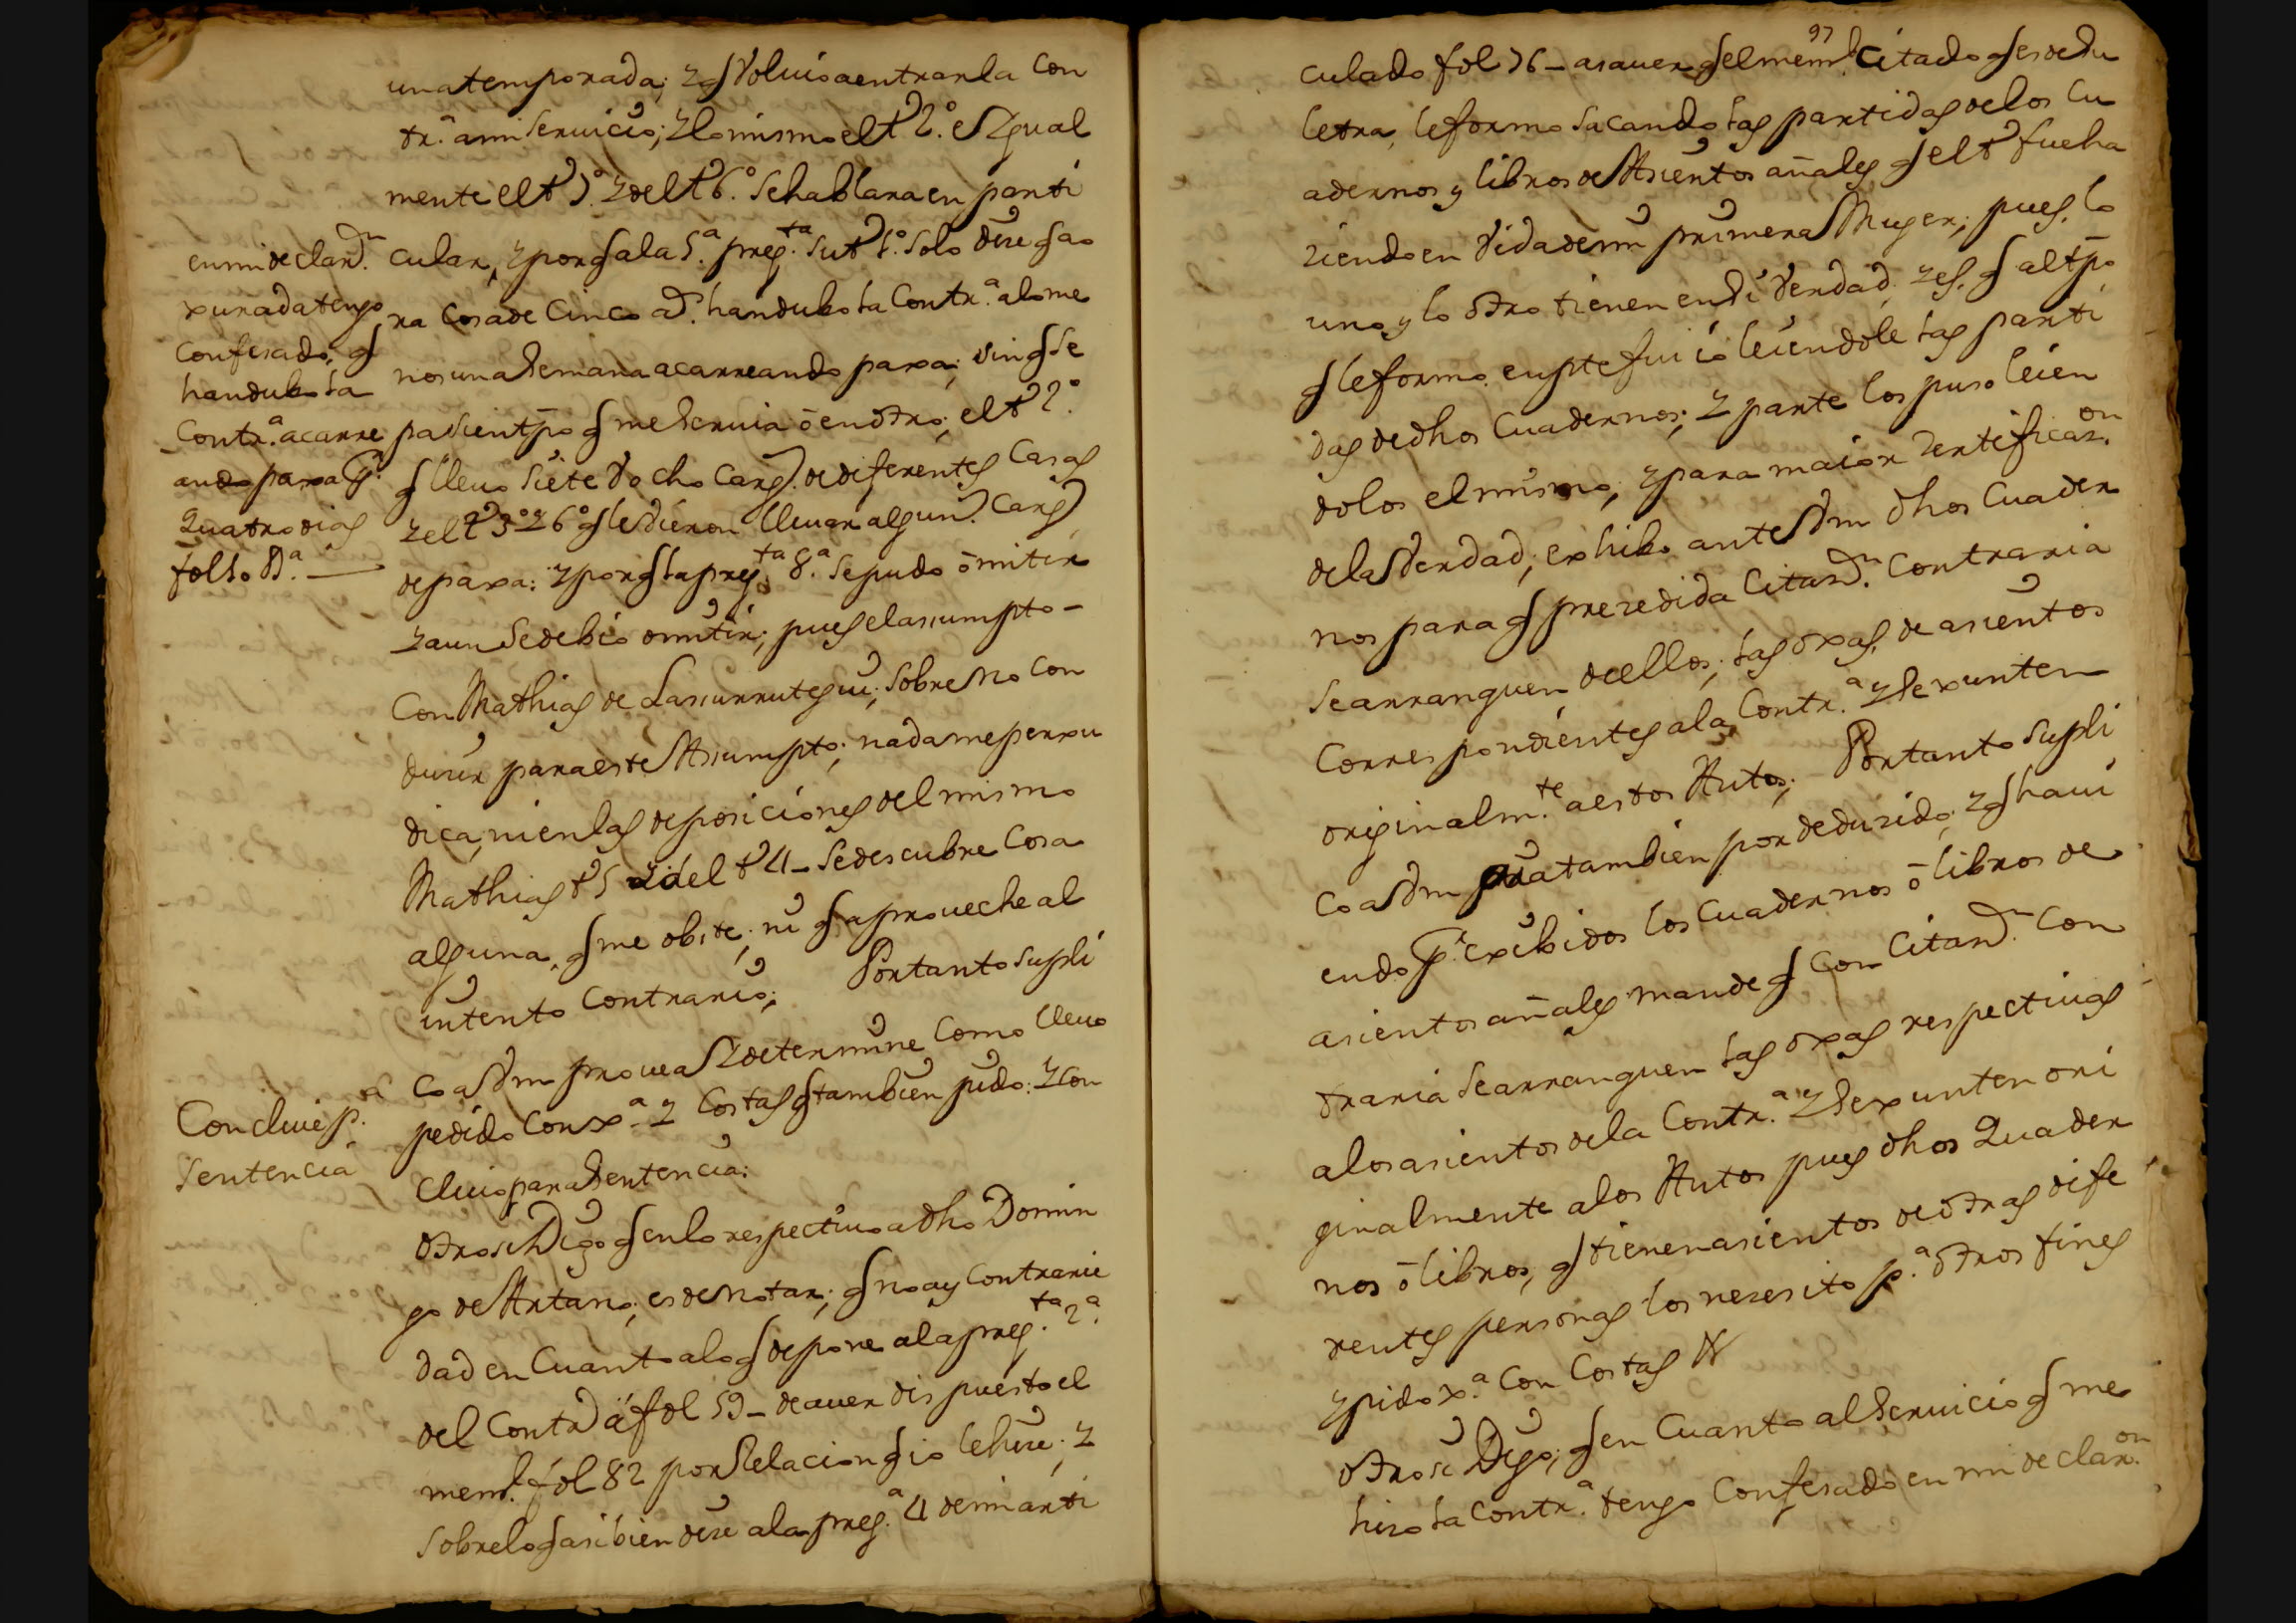 una temporada; y q Voluio a entrarla Con
tr.ª a mi Seruicio; y lo mismo el tº 2.º e Ygual
mente el tº 5.º y del tº 6.º Se hablara en parti
cular, y por q a la 5.ª preg.ta su tº 1.º solo dize q ao
ra Cosa de Cinco a.s handubo la Contr.ª a lo me
nos una Semana acarreando paxa; sin q Se
pa Si en tpo q me Seruia ō en otro; el tº 2.º
q lleuo Siete V ocho Carg.s de diferentes Casas
y el tº 3.º y 6.º q le dieron lleuar algun.s Carg.s
de paxa: y por q la preg.ta 8.ª Se pudo ōmitir
y aun Se debio omitir; pues el assumpto –
Con Mathias de Lassurrutegui; Sobre No Con
duzir para este Assumpto; nada me perxu
dica, ni en las deposiciones del mismo
Mathias tº 5 ni del tº 4 – Se descubre Cosa
alguna, q me obste; ni q aproueche al
intento Contrario; Por tanto Supli
co a Vm prouea Y determine Como lleuo
pedido Con x.ª y Costas q tambien pido: y Con
cluio para Sentencia:
Otro si Digo q en lo respectiuo a dho Domin
go de Artano; es de Notar; q no ay Contrarie
dad en Cuanto a lo q depone a la preg.ta 2.ª
del Contr.º á fol 59 – de auer dispuesto el
mem.l fol 82 por Relacion q io le hize; y
Sobre lo q asi bien dize a la preg.ª 4 de mi arti
en mi declar.on
xurada tengo
Confesado; q
handubo la
Contr.ª acarre
ando paxa p.r
Quatro dias
fol 10 B.ª —
Concluie p.ª
Sentencia
97
culado fol 76 – a sauer q el mem.l Citado q es de su
letra, le formo Sacando las partidas de los Cu
adernos y libros de Asientos añales q el tº fue ha
ziendo en Vida de mi primera Muger; pues, lo
uno y lo otro tienen en Si Verdad, y es, q al tpo
q le formo, en pte fui io leiendole las parti
das de dhos Cuadernos; y parte los puso leien
dolos el mismo; y para maior zertificaz.on
de la Verdad; exhibo ante Vm dhos Cuader
nos para q prezedida Citaz.on Contraria
Se arranquen de ellos; las oxas, de asientos
Correspondientes a la Contr.ª y Se xunten
originalm.te a estos Autos; Por tanto Supli
co a Vm prouea tambien por deduzido; y q haui
endo p.r exibidos los Cuadernos ō libros de
asientos añales mande q Con Citaz.on Con
traria Se arranquen las oxas respectiuas
a los asientos de la Contr.ª y Se xunten ori
ginalmente a los Autos pues dhos Quader
nos ō libros, q tienen asientos de otras dife
rentes personas los nezesito p.ª otros fines
y pido x.ª Con Costas V
Otro si Digo; q en Cuanto al Seruicio q me
hizo la Contr.ª tengo Confesado en mi declar.on